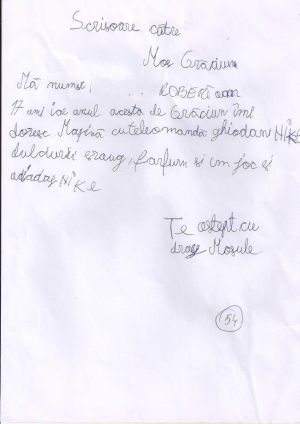 Scrisoare către
Moș Crăciun
Mă numesc, .. ROBERT am
7 ani iar anul acesta de Crăciun îmi
doresc Mașină cu teleomandă ghiodan NIKE
parfum si un joc și
NiKe
Te astept cu
drag Moșule.
54